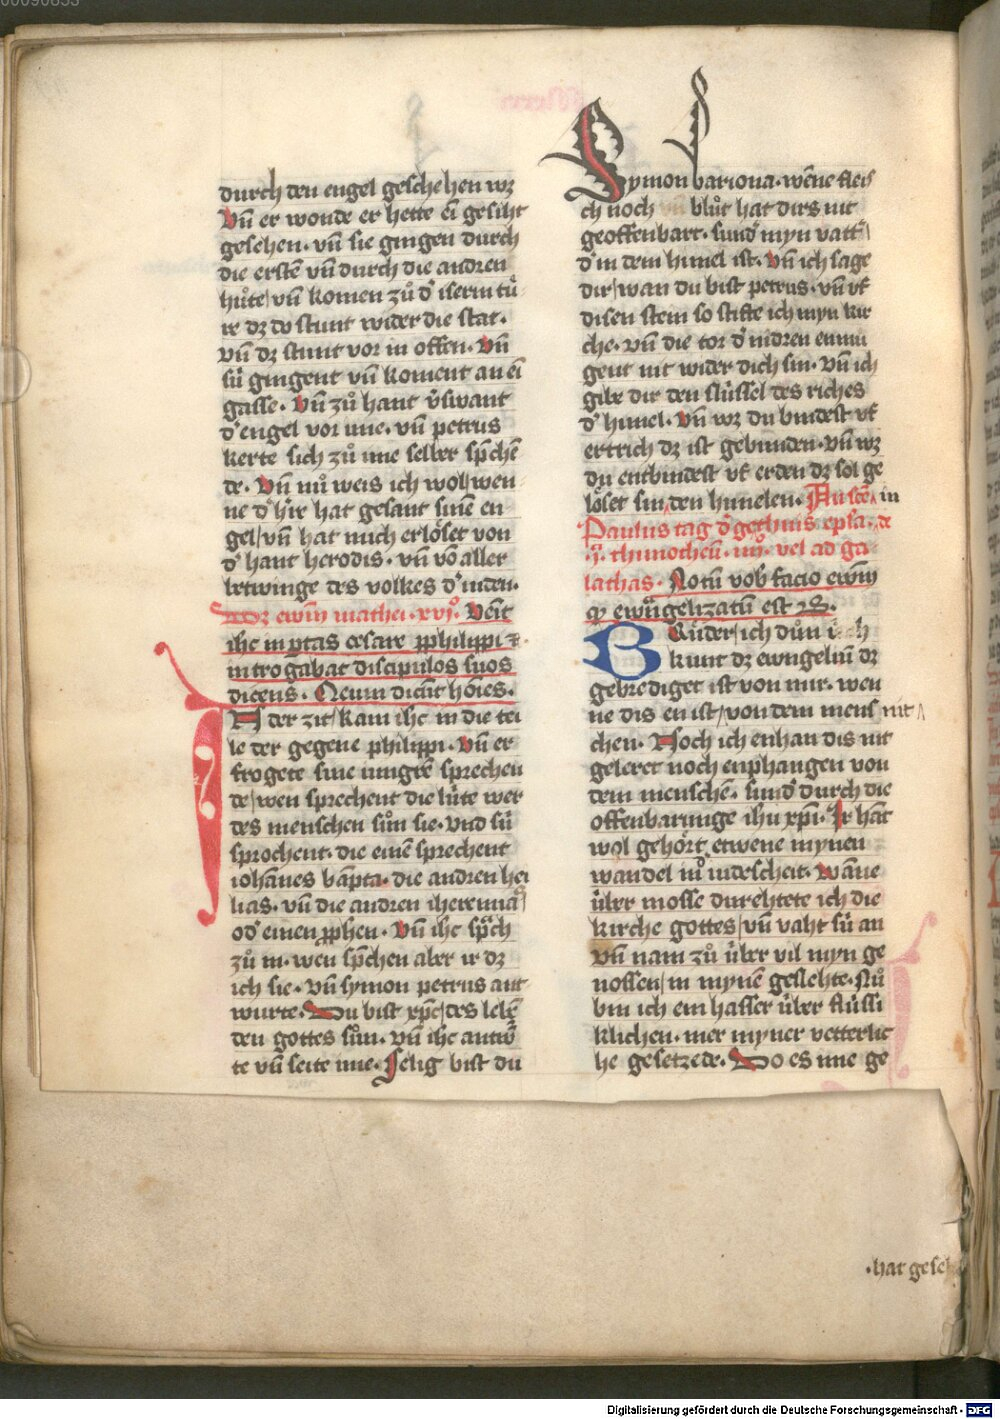 durch den engel geschehen wz
Vn̄ er wonde er hette eī gesiht
gesehen · vn̄ sie gingen durch
die erstē vn̄ durch die andren
hůte / vn̄ komen zů d' iserin tú
re dz do stunt wider die stat ·
vn̄ dz stunt vor in offen · Vn̄
sú gingent vn̄ koment an eī
gasse · Vn̄ zů hant v̓swant
d' engel vor ime · vn̄ petrus
kerte sich zů ime selber sp̄chē
de · Vn̄ nů weis ich wol wen
ne d' h're hat gesant sinē en
gel / vn̄ hat mich erlöset von
d' hant herodis · vn̄ vō aller
betwinge des volkes d' iuden ·
Dz ewm̄ mathei · xvjº · Venit
ihc in p̄tas cesare pphilippi ⁊
introgabat discipulos suos
dicens · Quem dicūt hōies ·
IN der zit / kam ihc in die tei
le der gegene philippi · Vn̄ er
frogete sine iungrē sprechen
de / wen sprechent die lúte wer
des menschen sůn sie · Vnd sú
sprochent · die einē sprechent
iohānes bāpta · die andren he
lias · vn̄ die andren iheremiā
od' einen pphen · Vn̄ ihc sp̄ch
zů in · wen sp̄chen aber ir dz
ich sie · Vn̄ symon petrus ant
wurte · Du bist xp̄c / des lebē
den gottes sůn · Vn̄ ihc antw
te vn̄ seite ime · Selig bist du
Symon bariona · wēne fleis
ch noch blůt hat dirs nit
geoffenbart · sund' myn vatt'
d' in dem himel ist · Vn̄ ich sage
dir / wan du bist petrus · vn̄ vf
disen stein so stifte ich myn kir
che · vn̄ die tor d' nidren enmu
gent nit wider dich sin · Vn̄ ich
gibe dir den slússel des riches
d' himel · Vn̄ wz du bindest vf
ertrich dz ist gebunden · Vn̄ wz
du enbindest vf erden dz sol ge
löset sin / den himelen · An scē in
Paulus tag d' gethuis epsa · de
thimotheū · iiijº · vel ad ga
lathas · Notū vob facio ewm̄
qͥ ewāgelizatū est
BRůder / ich důn úch
kunt dz ewngeliū dz
gebrediget ist von mir · wen
ne dis en ist / von dem mens nit
chen · Noch ich enhan dis nit
geleret noch enphangen von
dem menschē · sund' durch die
offenbarunge ihu xp̄i · Ir hāt
wol gehört etwene mynen
wandel iudescheit · Wāne
úber mosse durehtete ich die
kirche gottes / vn̄ vaht sú an
Vn̄ nam zů úber vil myn ge
nossen / in mynē geslehte · Nů
bin ich ein hasser úber flússi
klichen · mer myner vetterlic
he gesetzede · Do es ime ge
· hat gesch